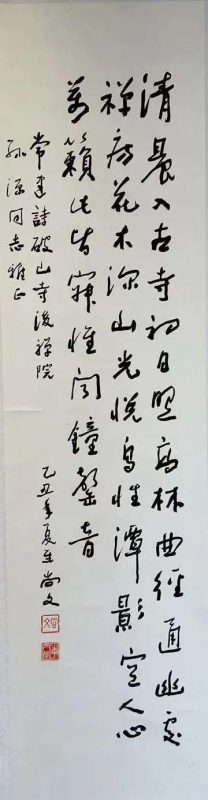 清晨入古寺初日照高林曲径通幽处
禅房花木深山光悦鸟性潭影空人心
万籁此皆寂惟闻钟磬音
常建詩破山寺後禅院
孙源同志雅正
乙丑年夏至尚文